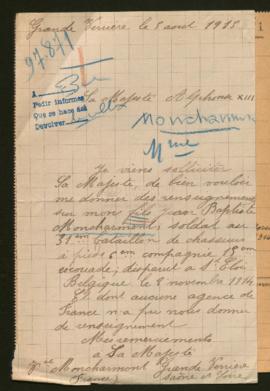 Grande Verrière le 8 avril 1915
97.871
A
Pedir informes
Que se haga acá
Devolver
Sa Majesté Alphonse XIII
Moncharmont
Mme
Je viens solliciter
Sa Majesté, de bien vouloir
me donner des renseignements
sur mon fils Jean Baptiste
Moncharmont, soldat au
31eme bataillon de chasseurs
à pieds 6eme compagnie
escouade, disparut à St Eloi
Belgique le 2 novembre 1914
Et dont aucune agence de
France n'a pu nous donner
de renseignement
Mes remerciements
à Sa Majesté
Moncharmont Grande Verrière
(France) Saône et Loire